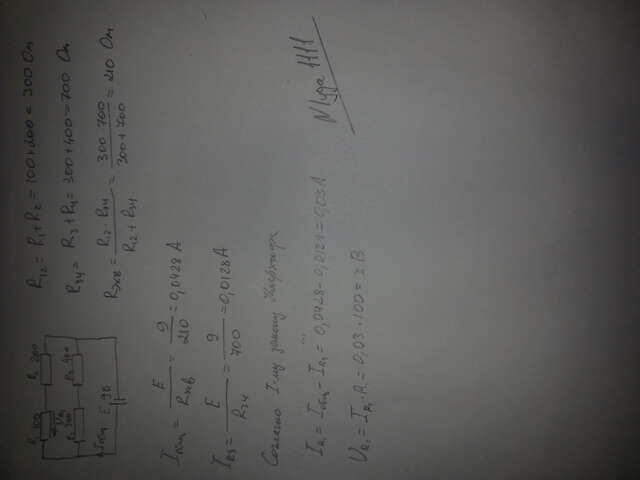 R₁ 100 R₂ 200
U_R₁
R₃ 300 R₄ 400
I общ
E 9В
R₁₂ = R₁ + R₂ = 100 + 200 = 300 Ом
R₃₄ = R₃ + R₄ = 300 + 400 = 700 Ом
Rэкв = R₁₂ · R₃₄ / R₁₂ + R₃₄ = 300 · 700 / 300 + 700 = 210 Ом
Iобщ = E / Rэкв = 9 / 210 = 0,0428 А
I_R3 = E / R₃₄ = 9 / 700 = 0,0128 А
Согласно I-му закону Кирхгофа
I_R₁ = Iобщ - I_R₃ = 0,0428 - 0,0128 = 0,03 А
U_R₁ = I_R₁ · R = 0,03 · 100 = 3 В
Nlyda 1111